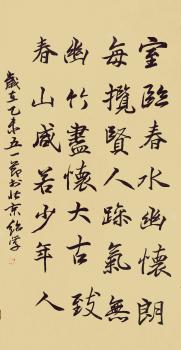 室臨春水幽懷朗
每攬賢人躁氣無
幽竹盡懷大古致
春山咸若少年人
歲在乙未五一節書於北京